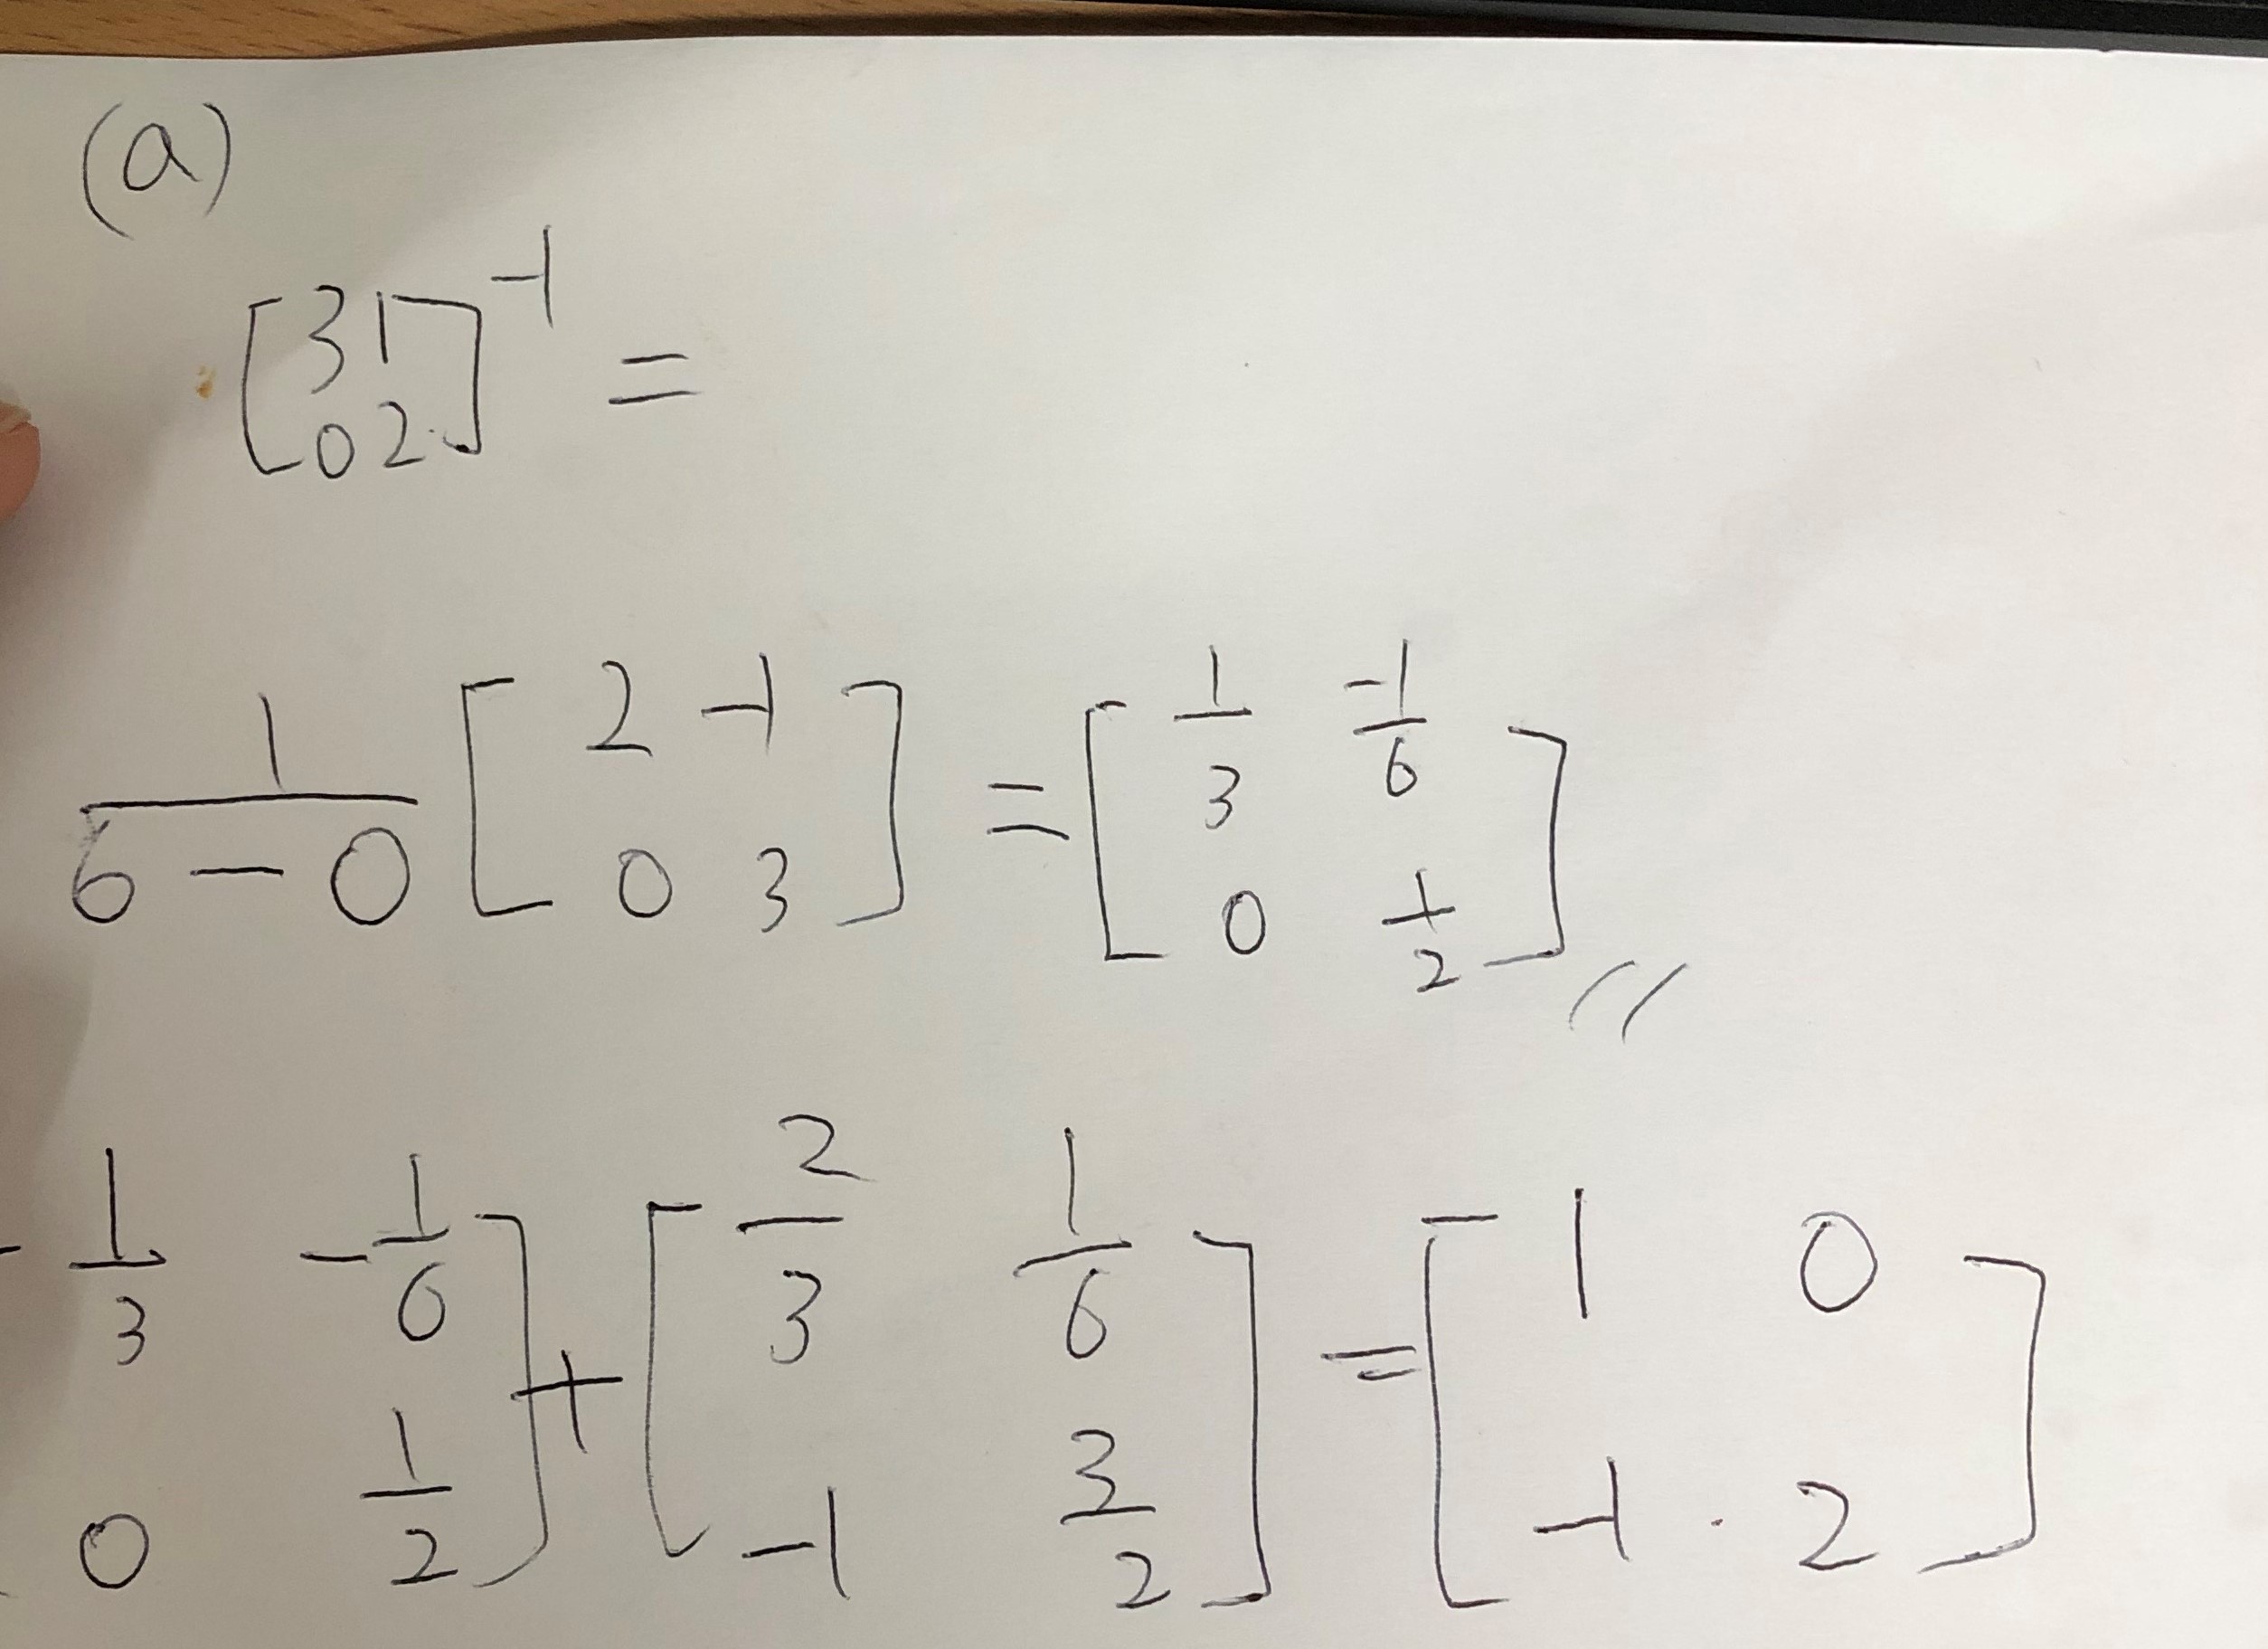 (a)
[3 1
0 2]^-1 =
1/(6 - 0) [2 -1
0 3] = [1/3 -1/6
0 1/2] //
1/3 -1/6
0 1/2] + [2/3 1/6
-1 3/2] = [1 0
-1 . 2]